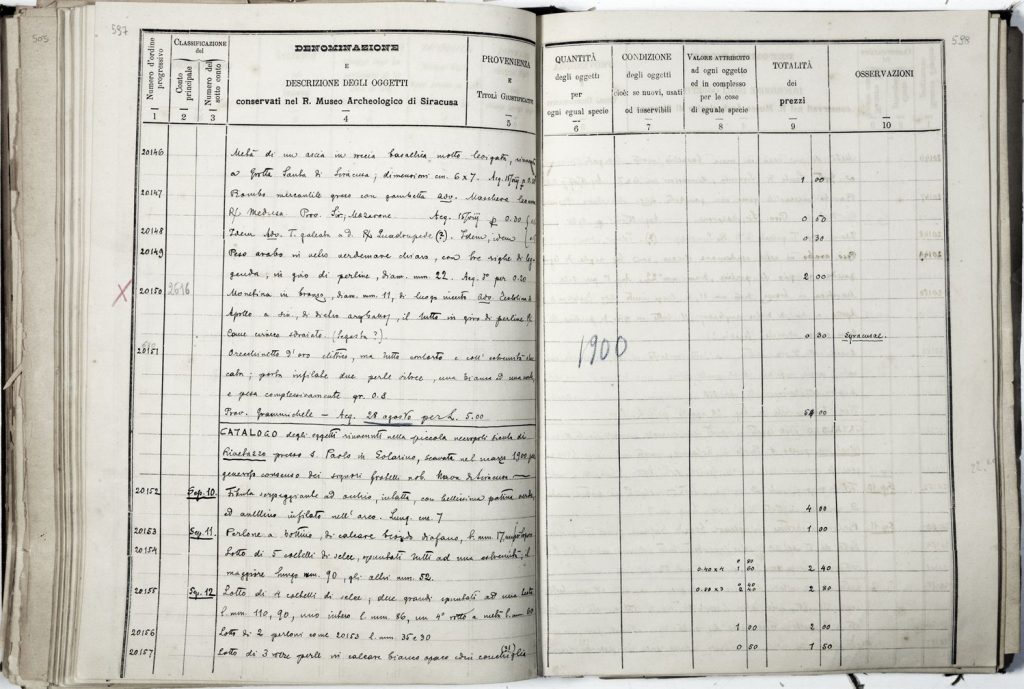 505
597
598
Numero d'ordine progressivo
CLASSIFICAZIONE del
Conto principale
Numero del sotto conto
DENOMINAZIONE
E
DESCRIZIONE DEGLI OGGETTI
conservati nel R. Museo Archeologico di Siracusa
PROVENIENZA
E
TITOLI GIUSTIFICATIVI
QUANTITÀ
degli oggetti
per
ogni egual specie
CONDIZIONE
degli oggetti
cioè: se nuovi, usati
od inservibili
VALORE ATTRIBUITO
ad ogni oggetto
ed in complesso
per le cose
di eguale specie
TOTALITÀ
dei
prezzi
OSSERVAZIONI
1 2 3 4 5 6 7 8 9 10
20146 Metà di un ascia in roccia basaltica molto levigata,
a Grotta Santa di Siracusa; dimensioni cm. 6 x 7. Acq. 1 00
20147 Piombo mercantile greco con gambetta adv. Maschera
R/ Medusa Prov. Sir, Mazarone. Acq. 0.80 0 50
20148 Idem Adv. T. galeata a d. R/ Quadrupede (?). Idem, idem 0 30
20149 Peso arabo in vetro verdemare chiaro, con tre righe di leg
genda, in giro di perline, diam. mm. 22. Acq. per 0.20 2 00
X 20150 2616 Monetina in bronzo, diam. mm. 11, di luogo incerto adv. Testolina di
Apollo a sin, di dietro, il tutto in giro di perline R/
Cane cirneco sdraiato. (Segesta?). 0 30 Syracusae.
20151 Orecchinetto d'oro elittico, ma tutto contorto e coll' estremità
; porta infilate due perle vitree, una bianca ed una
e pesa complessivamente gr. 0.8
Prov. Grammichele – Acq. 28 agosto per L. 5.00 00
1900
CATALOGO degli oggetti rinvenuti nella piccola necropoli sicula di
Rivettazzo presso S. Paolo in Solarino, scavata nel marzo 1900, per
generoso consenso dei signori fratelli nob. di Siracusa
20152 Sep. 10. Fibula serpeggiante ad occhio, intatta, con bellissima patina verde,
ed anellino infilato nell' arco. Lung. cm. 7 4 00
20153 Sep. 11. Perlone a bottino, di calcare diafano, l. mm. 17, 1 00
20154 Lotto di 5 coltelli di selce, spuntati tutti ad una estremità, il
maggiore lungo mm. 90, gli altri mm. 52. 0.40 x 4 1 60 2 40
20155 Sep. 12 Lotto di 4 coltelli di selce, due grandi spuntati ad una testa
l. mm. 110, 90, uno intero l. mm. 86, un 4° rotto a metà l. mm 60 0.80 x 3 2 40 2 80
20156 Lotto di 2 perloni come 20153 l. mm. 35 e 30 1 00 2 00
20157 Lotto di 3 altre perle in calcare bianco opaco 0 50 1 50